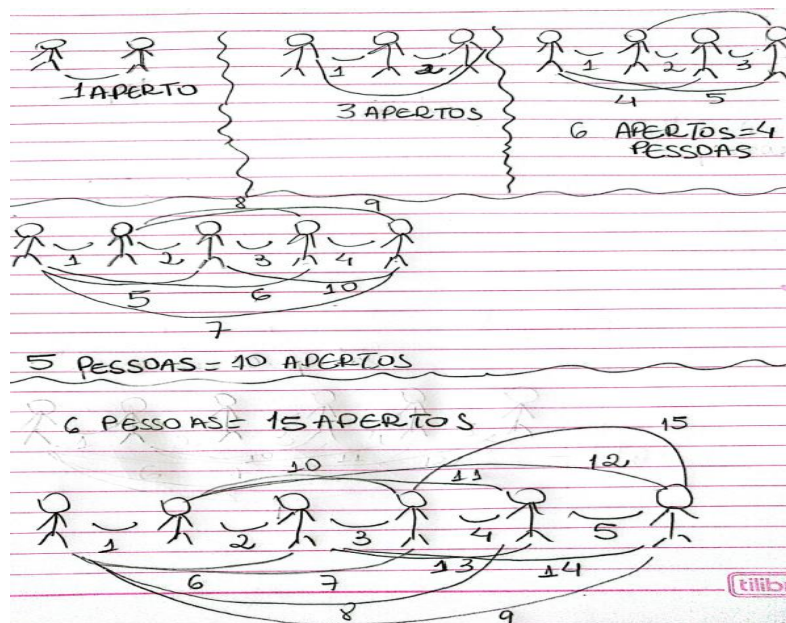 1 2
1 APERTO
1 2
3 APERTOS
1 2 3
4 5
6 APERTOS=4
PESSOAS
8 9
1 2 3 4
5 6 10
7
5 PESSOAS = 10 APERTOS
6 PESSOAS= 15 APERTOS
15
10 11 12
1 2 3 4 5
6 7 13 14
8 9
tilib